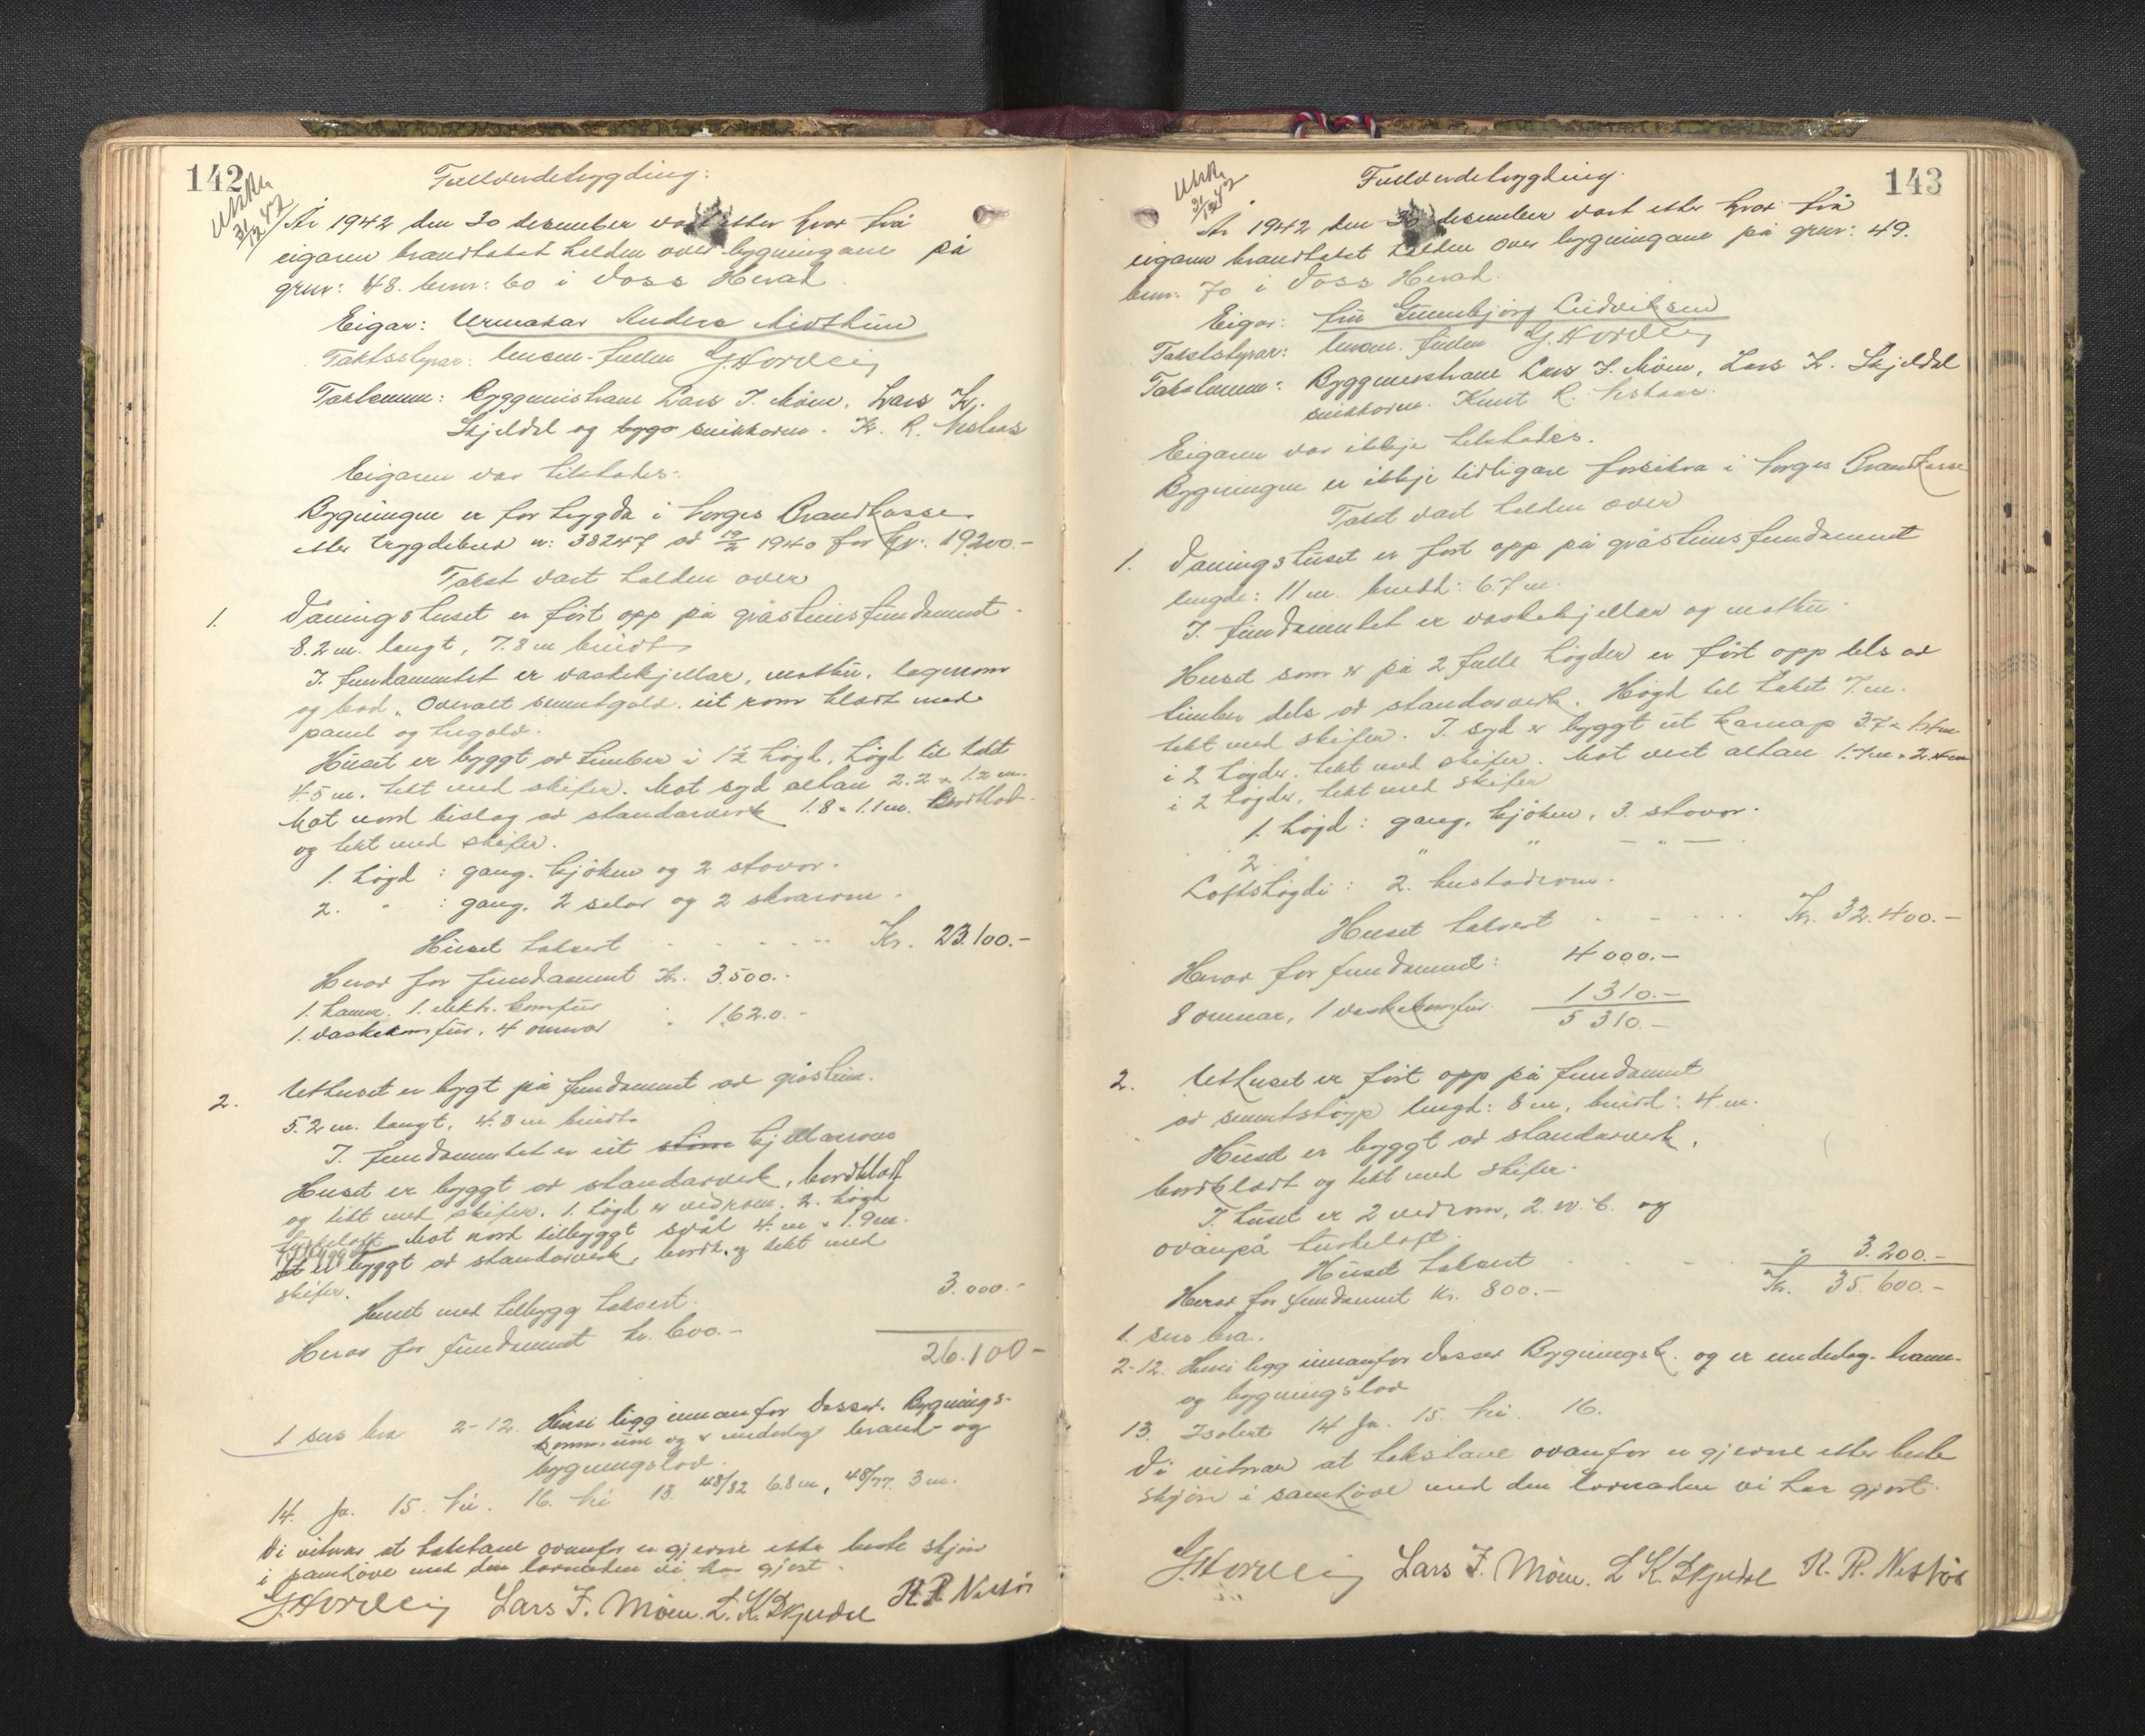 142
Fullverdetrygding:
Utskr. 31/12 42
År 1942 den 30 desember vart etter krav frå
eigaren brandtakst halden over bygningane på
grnr: 48. brnr: 60 i Voss Herad
Eigar: Urmakar Anders Midthun
Takststyrar: lensm.-fullm G. Horvei
Takstmenn: Byggmeistrane Lars J. Møen, Lars K.
Skjeldal og snikkaren K. R. Nestås
Eigaren var tilstades.
Bygningen er for trygda i Norges Brandkasse
etter trygdebrev nr: 38247 av 19/2 1940 for kr. 19200.-
Takst vart halden over
1. Våningshuset er ført opp på gråsteinsfundament
8.2 m. langt, 7.8 m breidt
I fundamentet er vaskekjellar, matbu, lagerrom
og bod. Overalt sementgolv. eit rom kledt med
panel og tregolv.
Huset er byggt av timber i 1½ høgd, høgd til taket
4.5 m. tekt med skifer. Mot syd altan 2.2 x 1.2 m.
Mot nord bislag av standarverk 1.8 x 1.1 m. Bordkled
og tekt med skifer.
1. høgd : gang, kjøken og 2 stovor.
2. " : gang, 2 salar og 2 skrårom.
Huset taksert - - - - - Kr. 23.100.-
Herav for fundament Kr. 3.500.-
1. kamin. 1. elektr. komfur
1. vaskekomfur, 4 omnar " 1.620.-
2. Uthuset er bygt på fundament av gråstein.
5.2 m. langt, 4.8 m breidt.
I fundamentet er eit kjellarrom
Huset er byggt av standarverk, bordkledt
og tekt med skifer. 1. høgd er vedrom. 2. høgd
tørkeloft. Mot nord tilbyggt svål 4. m x 1.9 m.
Tilbygget er byggt av standarverk, bordk. og tekt med
skifer.
Huset med tilbygg taksert. 3.000.-
Herav for fundament kr. 600.-
26.100-
1 sers bra 2-12. Husi ligg innanfor Vossev. Bygnings-
kommune og er underlag brand- og
bygningslov.
14. Ja. 15. Nei. 16. Nei 13. 48/82 6.8 m, 48/77. 3 m.
Vi vitnar at takstane ovanfor er gjevne etter beste skjøn
i samhøve med den lovnaden vi har gjort.
G. Horvei Lars J. Møen. L. K. Skjeldal K R Nestås
143
Fullverdetrygding.
Utskr. 31/12 42
År 1942 den 30 desember vart etter krav frå
eigaren brandtakst halden over bygningane på grnr: 49.
brnr. 70 i Voss Herad.
Eigar: fru Gunnbjørg Ludviksen
Takststyrar: lensm. fullm G. Horvei
Takstmenn: Byggmeistrane Lars J. Møen, Lars K. Skjeldal
snikkaren. Knut R. Nestaas.
Eigaren var ikkje tilstades.
Bygningen er ikkje tidligare forsikra i Norges Brandkasse
Takst vart halden over
1. Våningshuset er ført opp på gråsteinsfundament
lengde: 11 m. breidd: 6.7 m.
I fundamentet er vaskekjellar og matbu.
Huset som er på 2 fulle høgder er ført opp dels av
timber dels av standarverk. Høgd til taket 7. m.
tekt med skifer. I syd er byggt ut karnap 3.7 x 1.4 m.
i 2 høgder, tekt med skifer. Mot vest altan 1.7 m x 2.4 m
i 2 høgder, tekt med skifer
1. høgd : gang, kjøken, 3. stovor.
2. " " " - " -
Loftshøgdi: 2. kvistadrom.
Huset taksert - - - - Kr. 32.400.-
Herav for fundament: 4000.-
8 omnar, 1 vaskekomfur. 1310.-
5 310.-
2. Uthuset er ført opp på fundament
av sementstøyp lengd: 8 m, breidd: 4. m.
Huset er byggt av standarverk,
bordkledt og tekt med skifer.
I huset er 2 vedrom, 2. w. c. og
ovanpå turkeloft.
Huset taksert - - - " 3.200.-
Herav for fundament kr. 800.- Kr. 35.600.-
1. sers bra.
2-12. Husi ligg innanfor Vossev Bygningsk. og er underlag. brann-
og bygningslov
13. Isolert 14 Ja. 15. Nei. 16.
Vi vitnar at takstane ovanfor er gjevne etter beste
skjøn i samhøve med den lovnaden vi har gjort.
G. Horvei Lars J. Møen. L K. Skjeldal K. R. Nestås